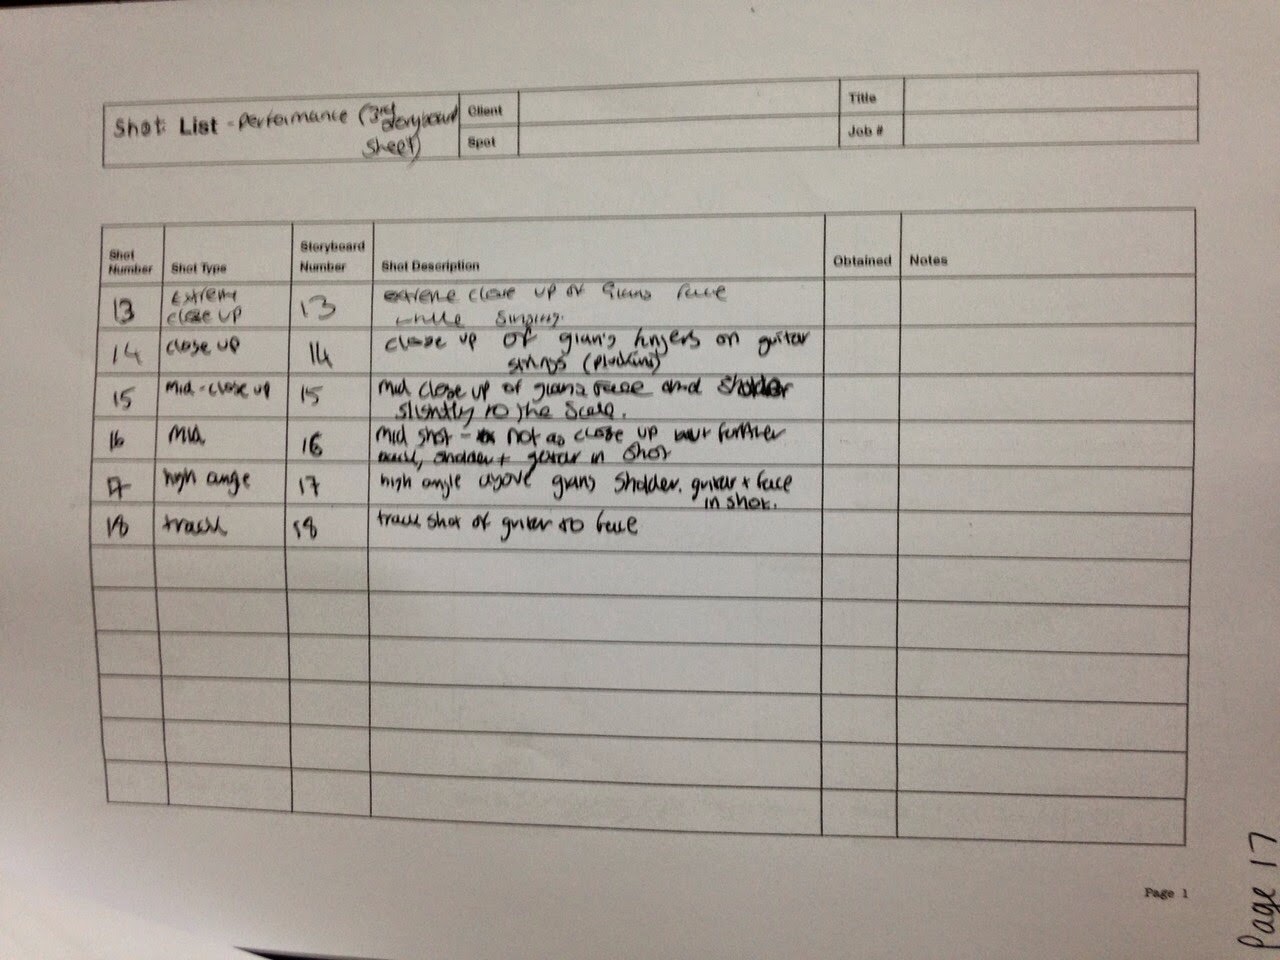 Shot List - Performance (3rd
storyboard
sheet)
Client
Spot
Title
Job #
Shot
Number
Shot Type
Storyboard
Number
Shot Description
Obtained
Notes
13
extreme
close up
13
extreme close up of face
while singing.
14
close up
14
close up of fingers on guitar
(plucking)
15
Mid-close up
15
Mid close up of face and sholder
slightly to the
16
Mid
16
Mid shot - not as close up but further
back, sholder + in shot
17
high ange
17
high angle above sholder. + face
in shot.
18
track
18
track shot of to face
Page 1
Page 17